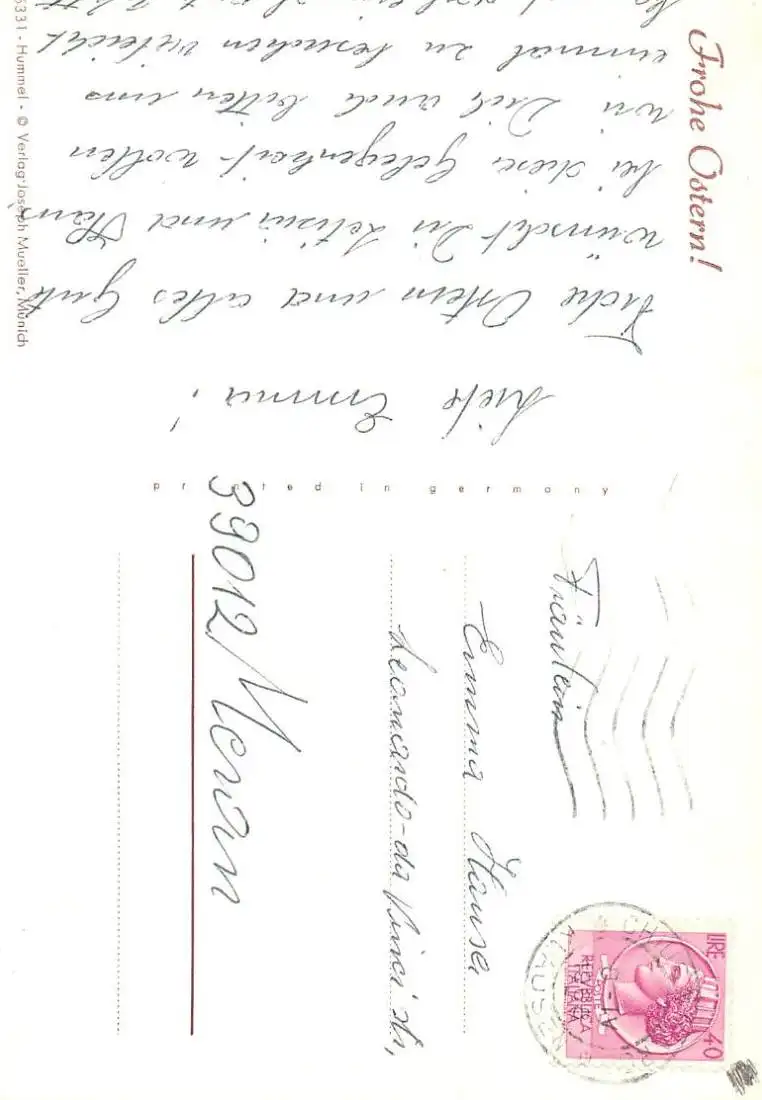 Frohe Ostern!
Liebe Emma!
Frohe Ostern und alles Gute
wünscht Dir Letizia und Hans
bei dieser Gelegenheit wollen
wir Dich auch bitten uns
einmal zu besuchen vieleicht
5331 - Hummel - © Verlag Joseph Mueller, Munich
printed in germany
Fräulein
Emma Hauser
Leonardo-da Vinci str,
39012/Meran
LIRE 40
REPVBBLICA
ITALIANA
POSTE
CHIUSA
KLAUSEN